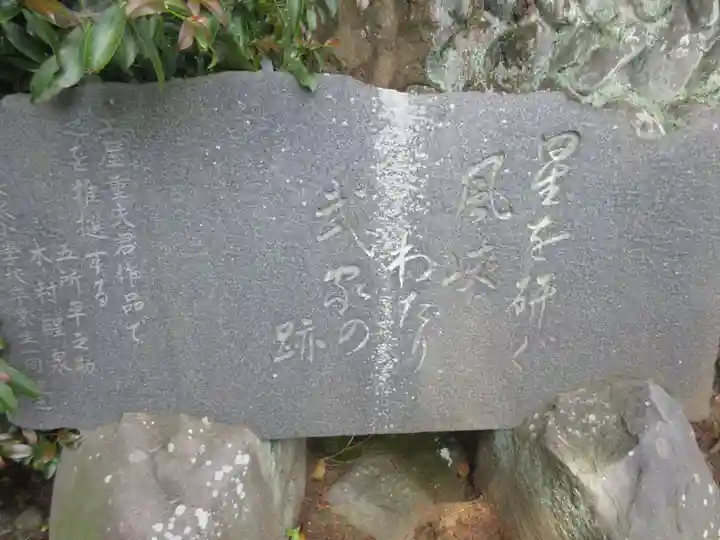 星を研ぐ
風
わたり
武家の
跡
屋重夫君作品で
を推奨する
五所平之助
木村